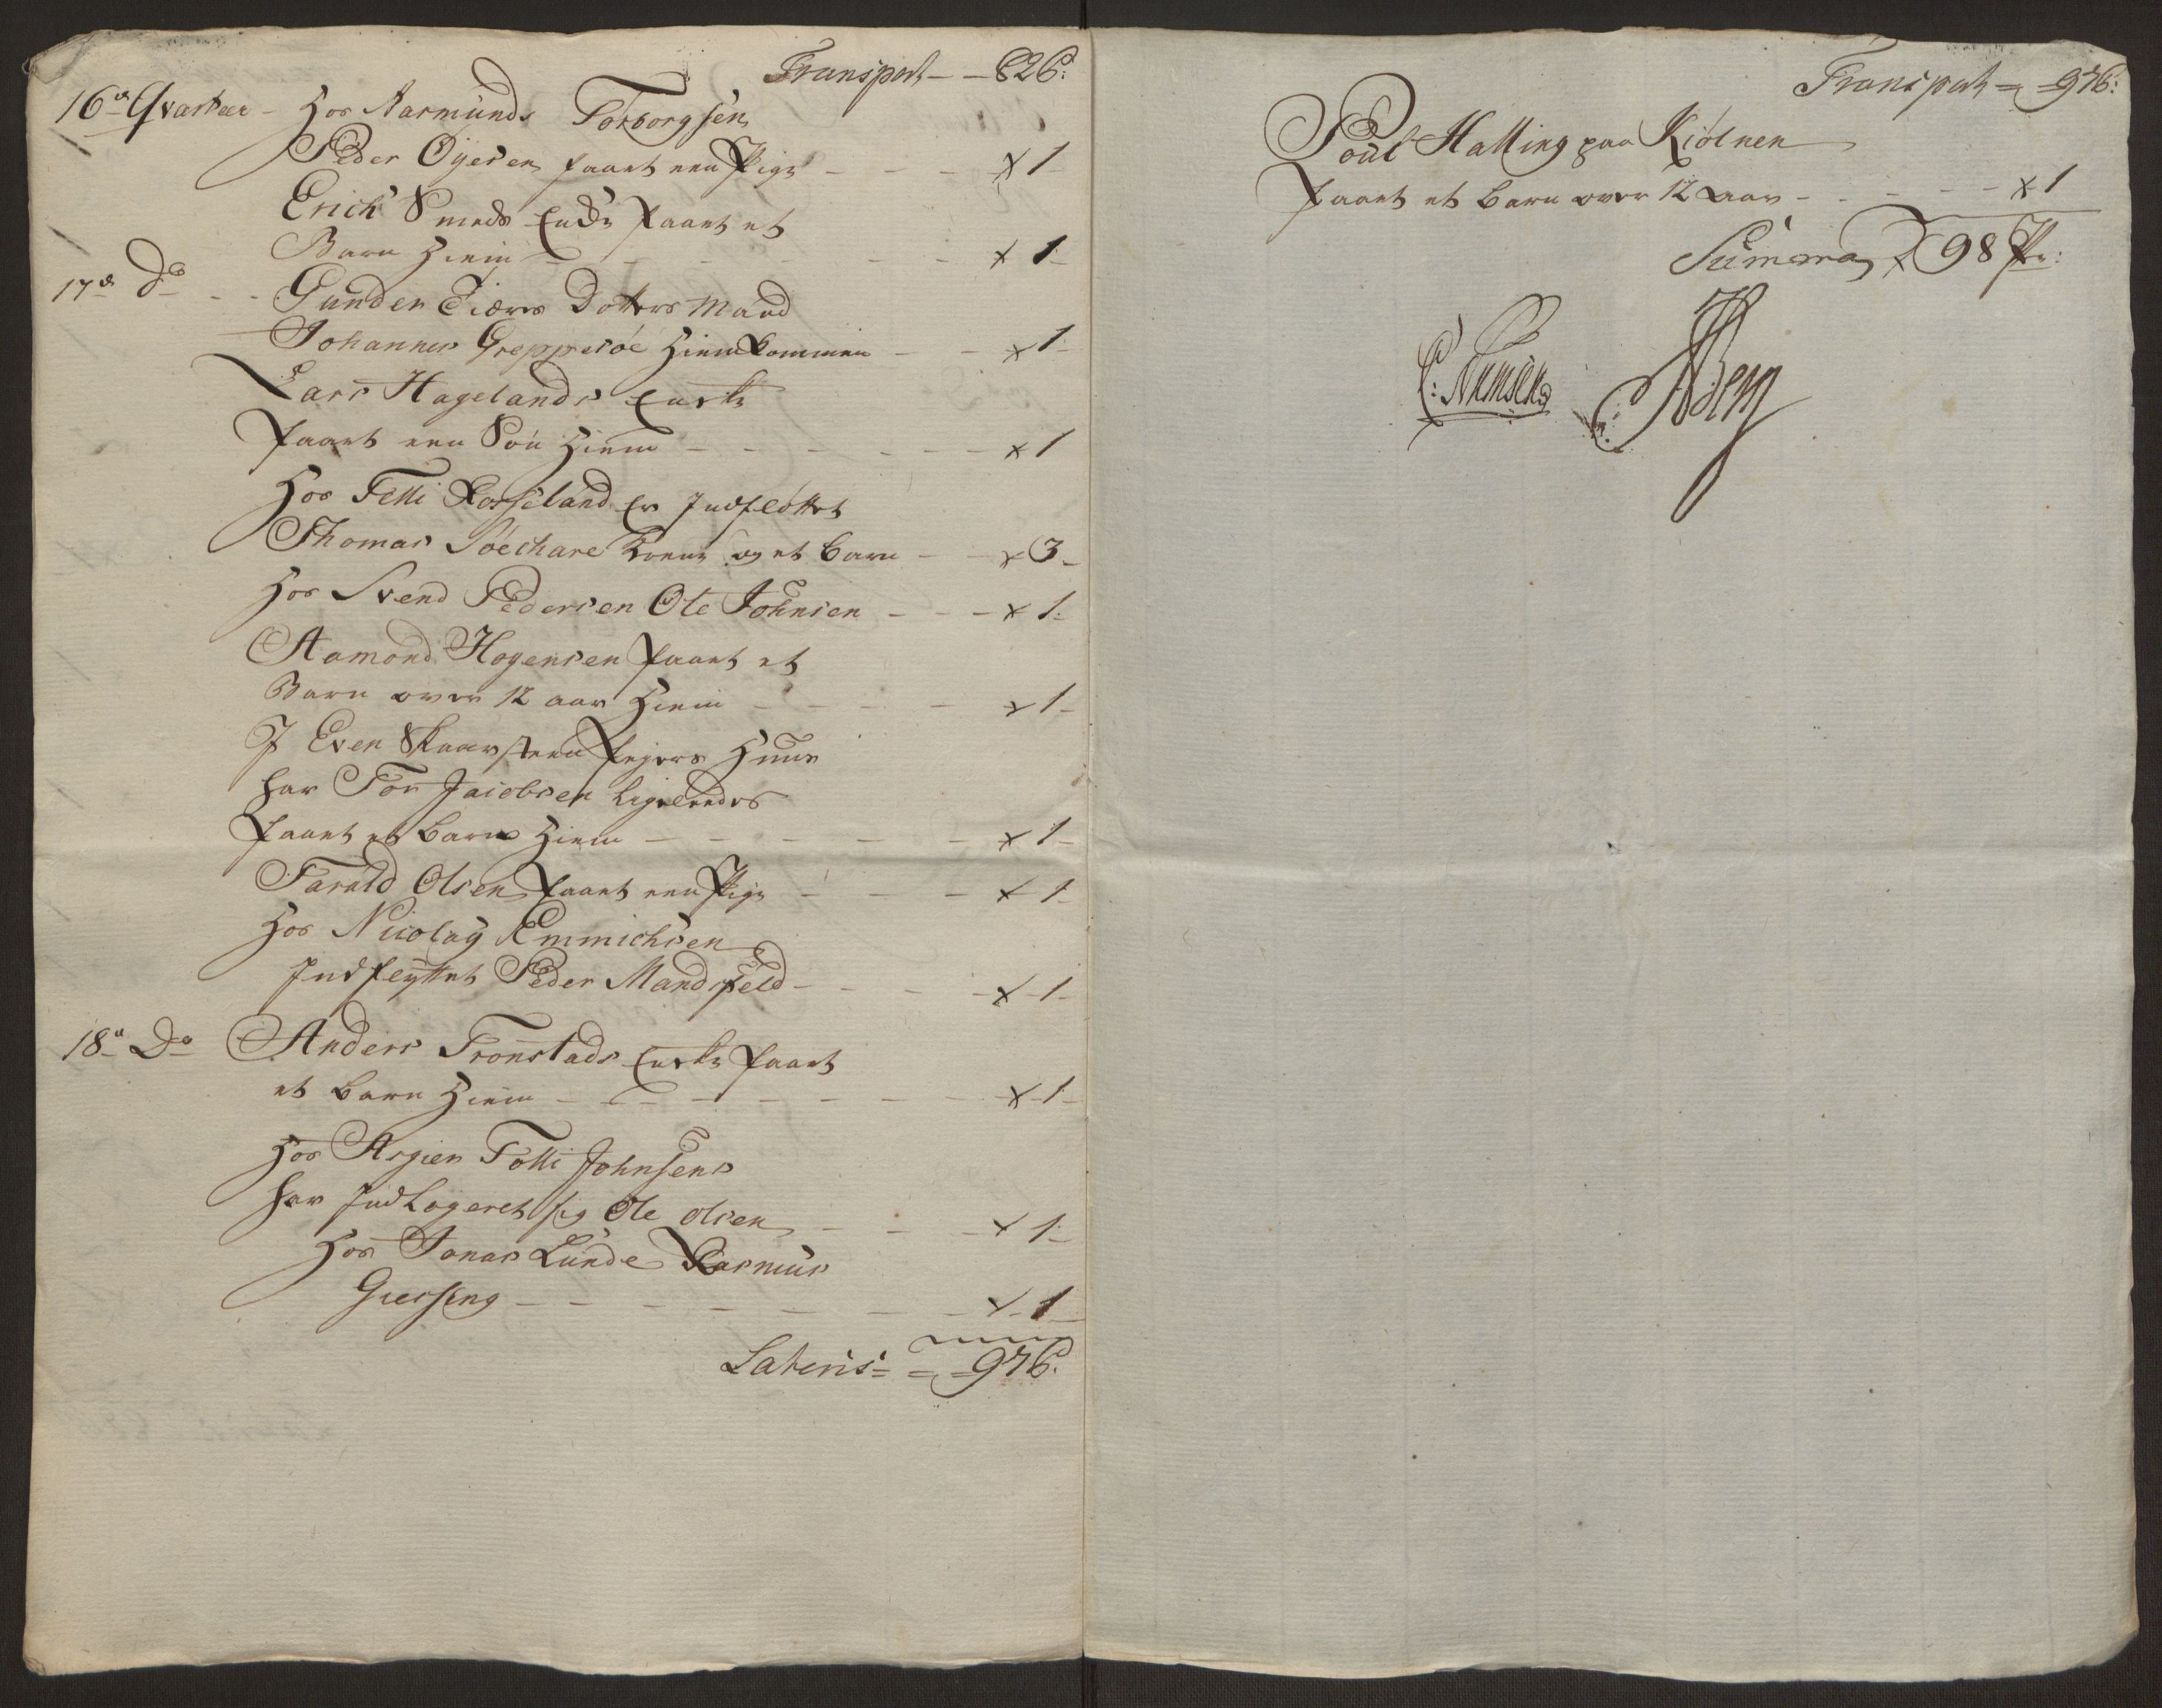 Transport - - 82 P:
16de Qvarteer - Hos Aarmunds Torborgsen
Peder Öyesen faaet een Pige - - - x 1 -
Erich Smeds Encke faaet et
Barn Hiem - - - - - x 1 -
17de do - - Gunder Tiørns Dotters Mand
Johannes Greppesöe Hiemkommen - - x 1 -
Lars Hagelands Encke
faaet een Sön Hiem - - - - - - x 1
Hos Telli Rosseland er Indflöttet
Thomas Söechare Kone og et barn - - x 3 -
Hos Svend Pedersen Ole Johnsen - - - x 1 -
Aamond Hogensen faaet et
Barn over 12 aar Hiem - - - - x 1 -
I Even Skaarsteen fejers Huus
har Tor Jacobsen ligeleedes
faaet et barn Hiem - - - - - x 1 -
Tarald Olsen faaet een Pige - - - x 1 -
Hos Nicolay Emmichsen
Indflyttet Peder Mandsfeld - - - - x 1 -
18de Do Anders Tronstads Encke faaet
et barn Hiem - - - - - - - x 1 -
Hos Asgier Tolli Johnsens
har Indlogeret sig Ole olsen - - - x 1 -
Hos Jonas Lunde Rasmus
Giessing - - - - - - - x 1 -
Lateris = = = 97 P:
Transport = = 97 P:
Poul Halling paa Kiölnen
faaet et barn over 12 aar - - - - - x 1
Summa x 98 P:
C: Numsen